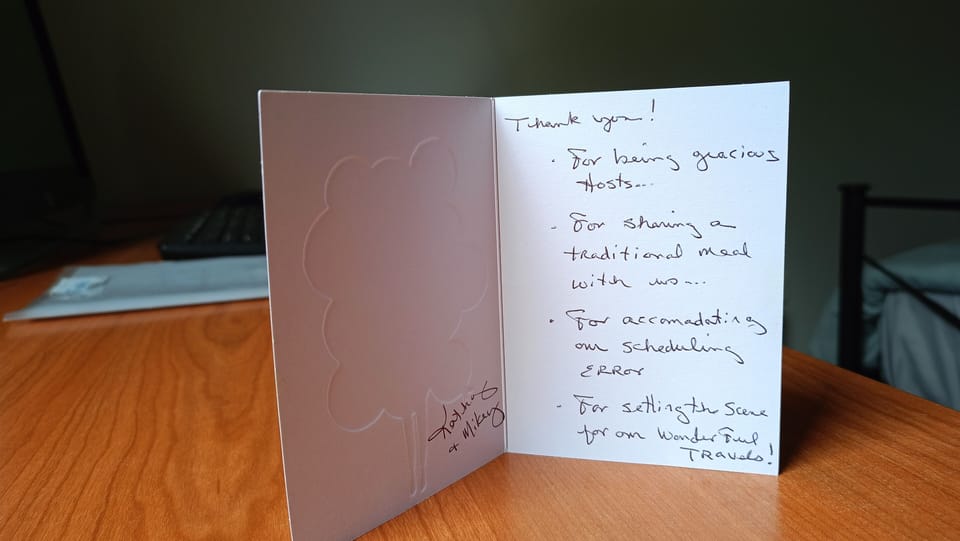 Thank you!
· For being gracious
Hosts...
- For sharing a
traditional meal
with us...
· For accomadating
our scheduling
ERROR
- For setting the scene
for our wonderful
TRAVELS!
& Mikey